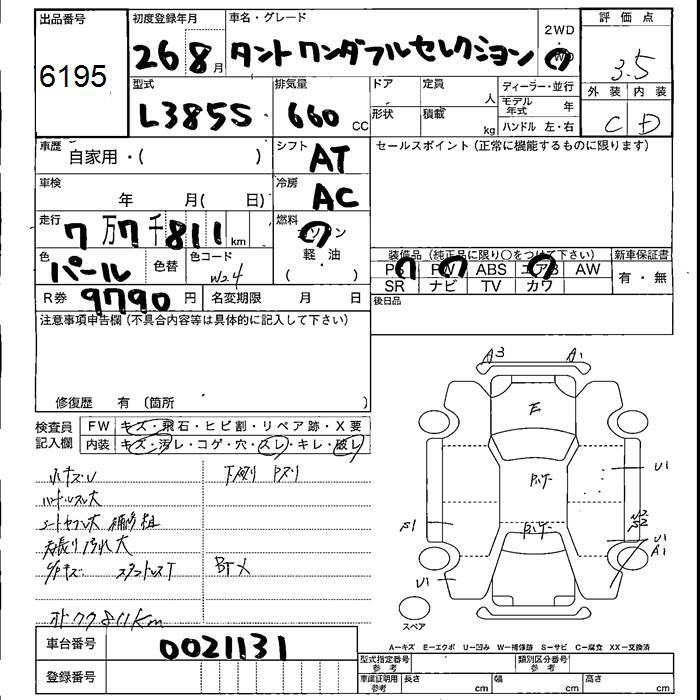 出品番号 初度登録年月 車名・グレード 2WD 評価点
6195 26 8月 タント ワンダフルセレクション 3.5
型式 排気量 ドア 定員 人 ディーラー・並行 外装 内装
L385S 660 CC 形状 積載 kg モデル年式 年 C D
ハンドル 左・右
車歴 自家用・( ) シフト AT セールスポイント(正常に機能するものに限ります)
車検 年 月( 日) 冷房 AC
走行 7万7千811km 燃料 ガソリン
軽・油
( )
色 パール 色替 色コード W24 装備品(純正品に限り○をつけて下さい) 新車保証書
PS PW ABS エアB AW 有・無
SR ナビ TV カワ
R券 9790円 名変期限 月 日 後日品
注意事項申告欄(不具合内容等は具体的に記入して下さい)
修復歴 有 (箇所 )
A3 A1
E
検査員記入欄 FW キズ・飛石・ヒビ割・リペア跡・X要
内装 キズ・汚レ・コゲ・穴・スレ・キレ・破レ
小キズU 下廻り Pズリ
ハンドルスレ大
U1
F1
U1
A1
U1
スペア
車台番号 0021131
A―キズ E―エクボ U―凹み W―補修跡 S―サビ C―腐食 XX―交換済
登録番号
型式指定番号 参考 類別区分番号 参考
車庫証明用 参考 長さ cm 幅 cm 高さ cm